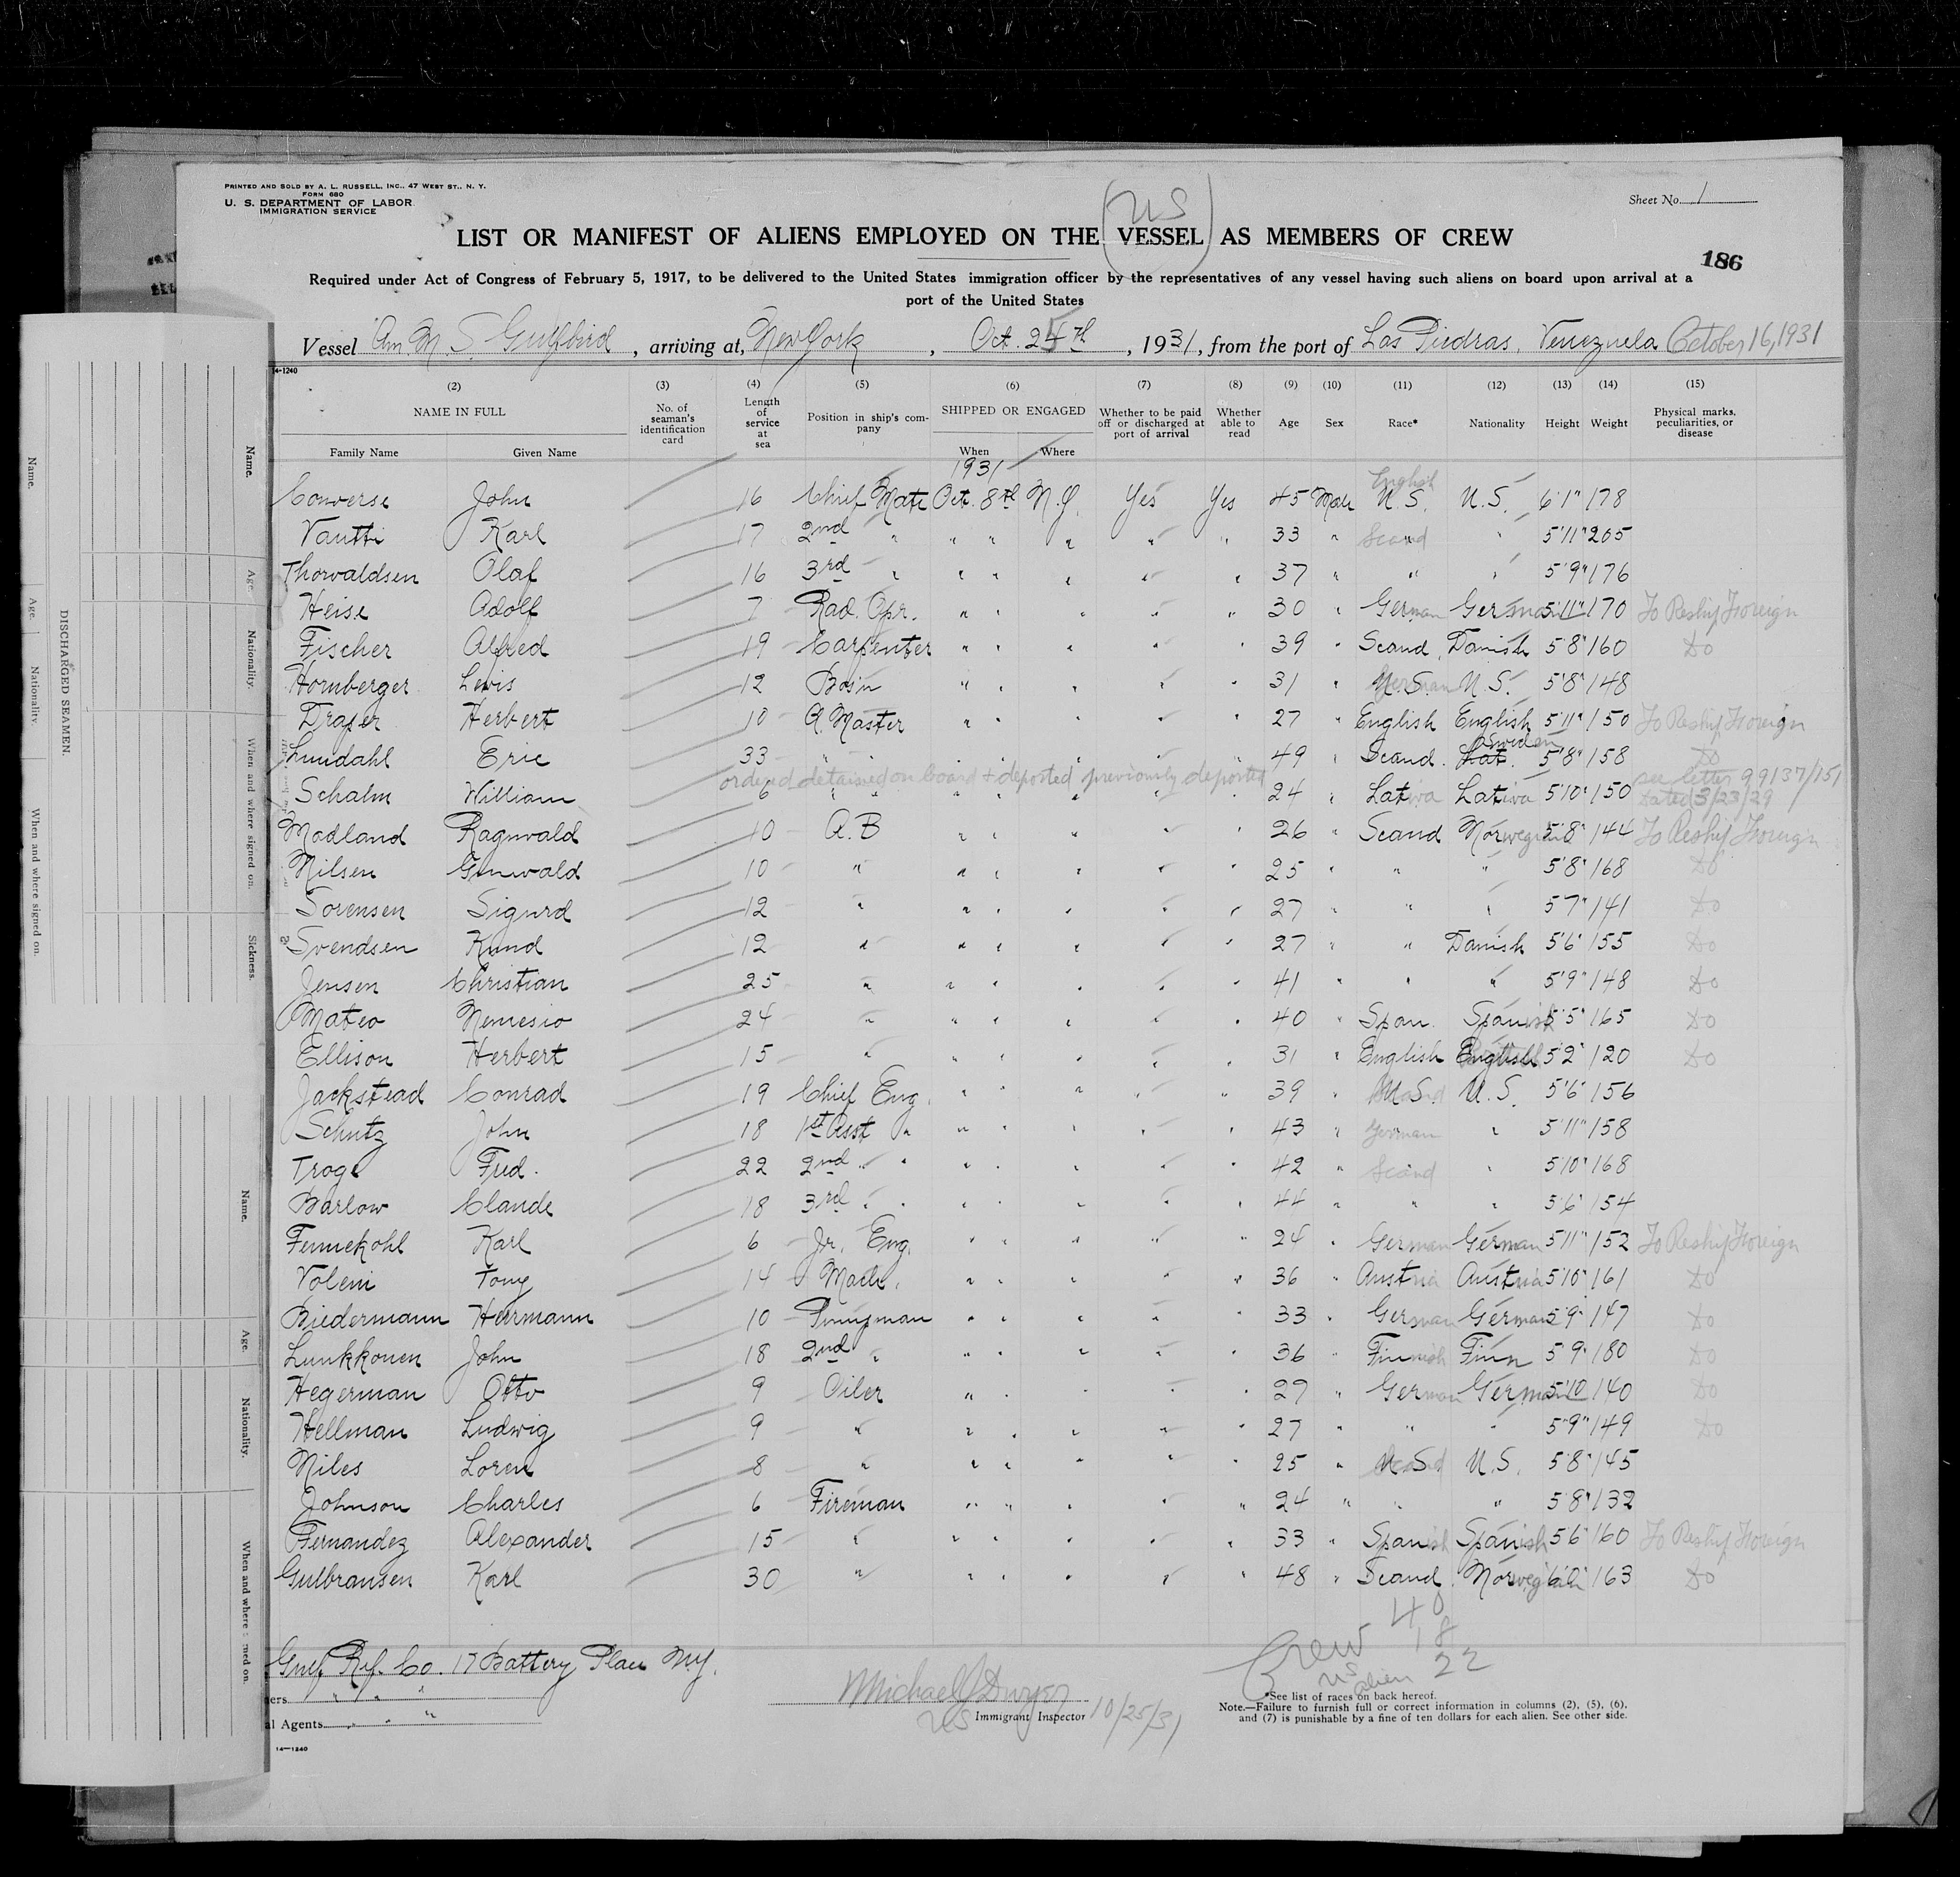 PRINTED AND SOLD BY A. L. RUSSELL, INC., 47 WEST ST., N. Y.
FORM 680
U. S. DEPARTMENT OF LABOR
IMMIGRATION SERVICE
Sheet No. 1
(US)
LIST OR MANIFEST OF ALIENS EMPLOYED ON THE VESSEL AS MEMBERS OF CREW
186
Required under Act of Congress of February 5, 1917, to be delivered to the United States immigration officer by the representatives of any vessel having such aliens on board upon arrival at a
port of the United States
Vessel Am. M. S. Gulfbird, arriving at, New York, Oct. 25th, 1931, from the port of Las Piedras, Venezuela October 16, 1931
14-1240
(2) (3) (4) (5) (6) (7) (8) (9) (10) (11) (12) (13) (14) (15)
NAME IN FULL No. of seaman's identification card Length of service at sea Position in ship's company SHIPPED OR ENGAGED Whether to be paid off or discharged at port of arrival Whether able to read Age Sex Race* Nationality Height Weight Physical marks, peculiarities, or disease
Family Name Given Name When Where
1931 English
Converse John 16 Chief Mate Oct. 8th N.Y. Yes Yes 45 Male U.S. U.S. 6'1" 178
Vautti Karl 17 2nd " " " " " " 33 " Scand " 5'11" 205
Thorvaldsen Olaf 16 3rd " " " " " " 37 " " " 5'9" 176
Heise Adolf 7 Rad. Opr. " " " " " 30 " German German 5'11" 170 To Reship Foreign
Fischer Alfred 19 Carpenter " " " " " 39 " Scand. Danish 5'8" 160 Do
Hornberger Lewis 12 Bos'n " " " " " 31 " German U.S. 5'8" 148
Draper Herbert 10 Q. Master " " " " " 27 " English English 5'11" 150 To Reship Foreign
Lundahl Eric 33 " " " " " " " 49 " Scand. Sweden 5'8" 158 Do
ordered detained on board & deported previously deported see letter 99137/151
Schalm William 6 " " " " " " " 24 " Latvia Latvia 5'10" 150 Dated 3/23/29
Modland Ragnvald 10 A.B " " " " " 26 " Scand Norwegian 5'8" 144 To Reship Foreign
Nilsen Gunwald 10 " " " " " " 25 " " " 5'8" 168 Do
Sorensen Sigurd 12 " " " " " " 27 " " " 5'7" 141 Do
Svendsen Knud 12 " " " " " " 27 " " Danish 5'6" 155 Do
Jensen Christian 25 " " " " " " 41 " " " 5'9" 148 Do
Mateo Nemesio 24 " " " " " " 40 " Span. Spanish 5'5" 165 Do
Ellison Herbert 15 " " " " " " 31 " English English 5'2" 120 Do
Jackstead Conrad 19 Chief Eng. " " " " " 39 " U.S. U.S. 5'6" 156
Schutz John 18 1st Asst " " " " " " 43 " German " 5'11" 158
Troge Fred. 22 2nd " " " " " " " 42 " Scand " 5'10" 168
Barlow Claude 18 3rd " " " " " " " 44 " " " 5'6" 154
Fennekohl Karl 6 Jr. Eng. " " " " " 24 " German German 5'11" 152 To Reship Foreign
Voleni Tony 14 Mach. " " " " " 36 " Austria Austria 5'10" 161 Do
Biedermann Hermann 10 Pumpman " " " " " 33 " German German 5'9" 147 Do
Lunkkonen John 18 2nd " " " " " " 36 " Finnish Finn 5'9" 180 Do
Hegerman Otto 9 Oiler " " " " " 29 " German German 5'10 140 Do
Hellman Ludwig 9 " " " " " " 27 " " " 5'9" 149 Do
Niles Loren 8 " " " " " " 25 " U.S. U.S. 5'8" 145
Johnson Charles 6 Fireman " " " " " 24 " " " 5'8" 132
Fernandez Alexander 15 " " " " " " 33 " Spanish Spanish 5'6" 160 To Reship Foreign
Gulbransen Karl 30 " " " " " " 48 " Scand. Norwegian 6'0" 163 Do
Crew 40
US 18
alien 22
Gulf Ref. Co. 17 Battery Place N.Y.
ers " " "
al Agents " " "
Michael J Dwyer
US Immigrant Inspector 10/25/31
*See list of races on back hereof.
Note.—Failure to furnish full or correct information in columns (2), (5), (6),
and (7) is punishable by a fine of ten dollars for each alien. See other side.
14—1240
DISCHARGED SEAMEN.
Name. Age. Nationality. When and where signed on.
Name. Age. Nationality. When and where signed on. Sickness.
Name. Age. Nationality. When and where signed on.